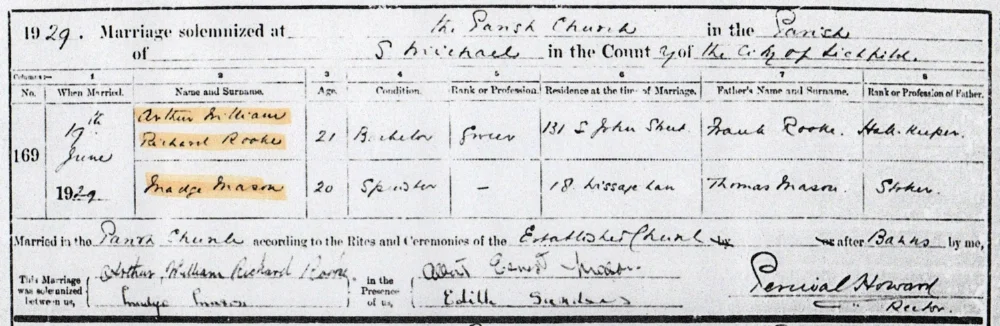 1929. Marriage solemnized at the Parish Church in the Parish
of S Michael in the County of the City of Lichfield.
Columns:— 1 2 3 4 5 6 7 8
No. When Married. Name and Surname. Age. Condition. Rank or Profession. Residence at the time of Marriage. Father's Name and Surname. Rank or Profession of Father.
169 19th June 1929 Arthur William Richard Rooke 21 Bachelor Grocer 131 S John Street Frank Rooke. Hotel Keeper.
Madge Mason 20 Spinster — 18 Thomas Mason. Stoker.
Married in the Parish Church according to the Rites and Ceremonies of the Established Church by or after Banns by me,
This Marriage was solemnized between us, Arthur William Richard Rooke. Madge Mason in the Presence of us, Albert Ernest Edith Percival Howard Rector.